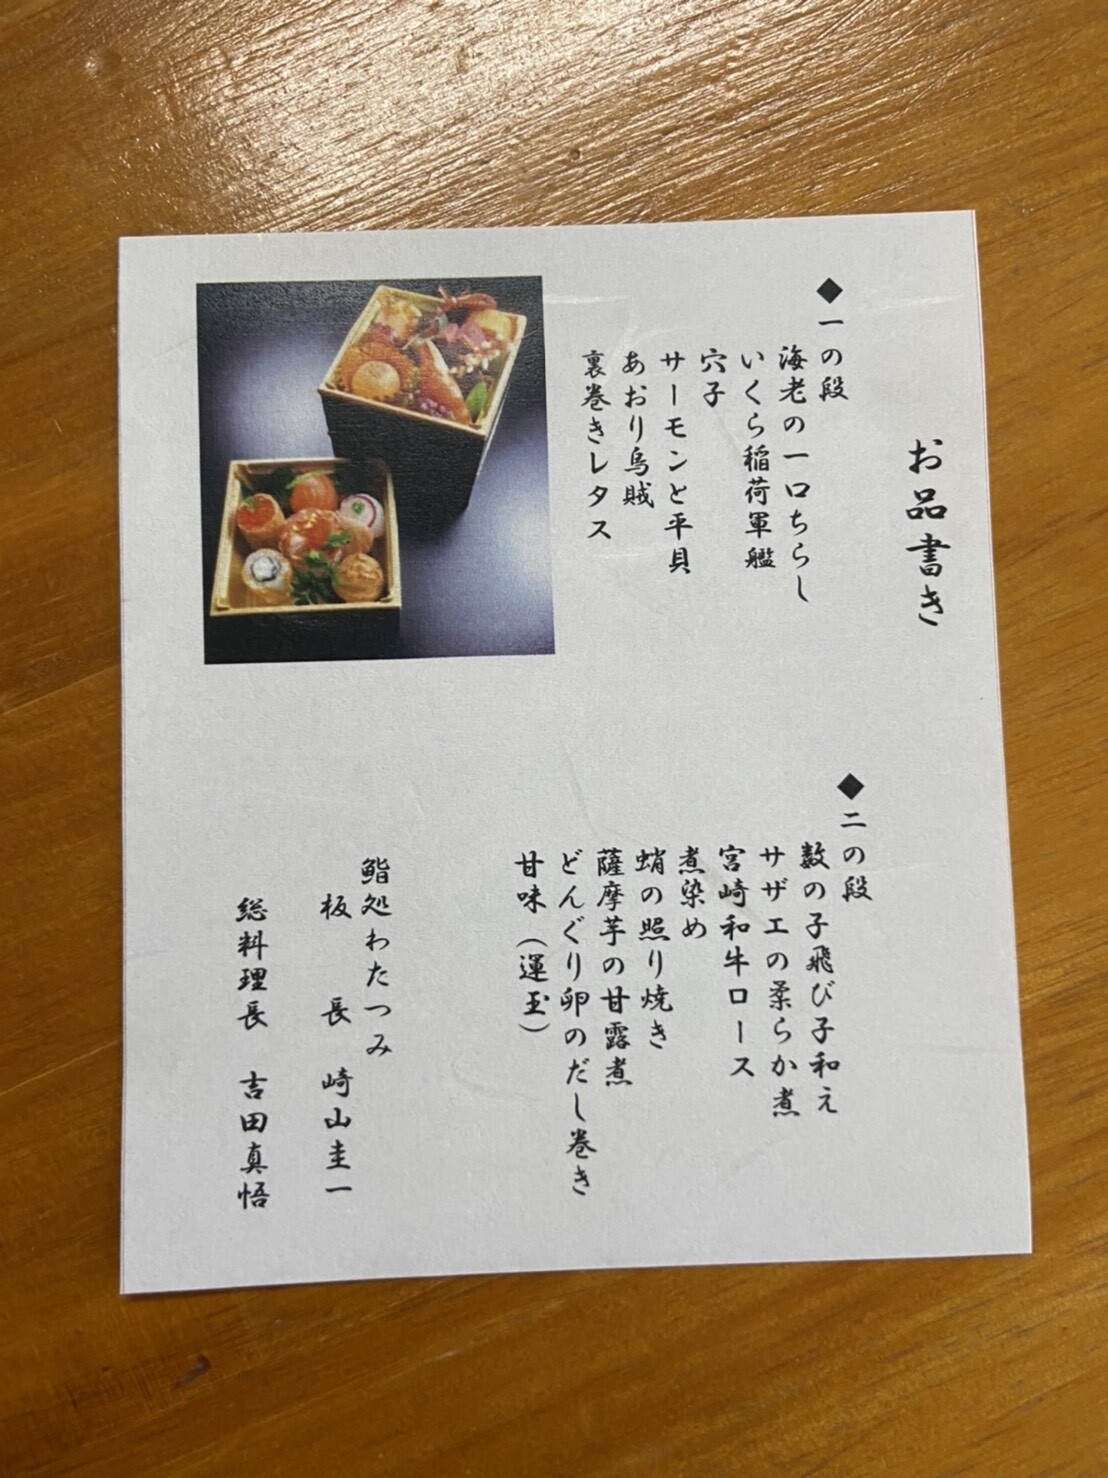 お品書き
◆一の段
海老の一口ちらし
いくら稲荷軍艦
穴子
サーモンと平貝
あおり烏賊
裏巻きレタス
◆二の段
数の子飛び子和え
サザエの柔らか煮
宮崎和牛ロース
煮染め
蛸の照り焼き
薩摩芋の甘露煮
どんぐり卵のだし巻き
甘味（運玉）
鮨処わたつみ
板 長 崎山圭一
総料理長 吉田真悟